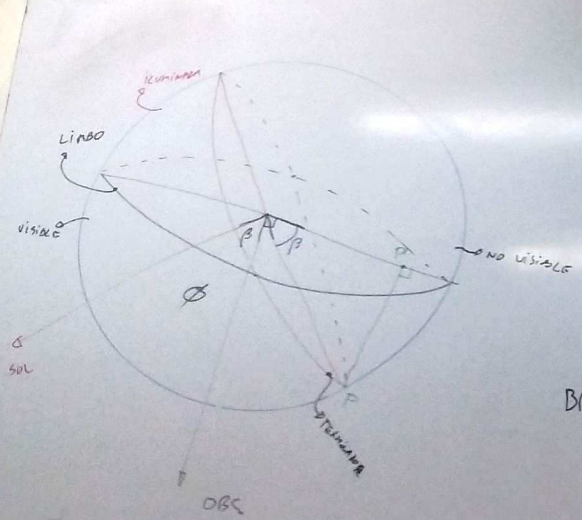 ILUMINADA
LIMBO
VISIBLE
NO VISIBLE
β
β
φ
SOL
P
TERMINADOR
OBS